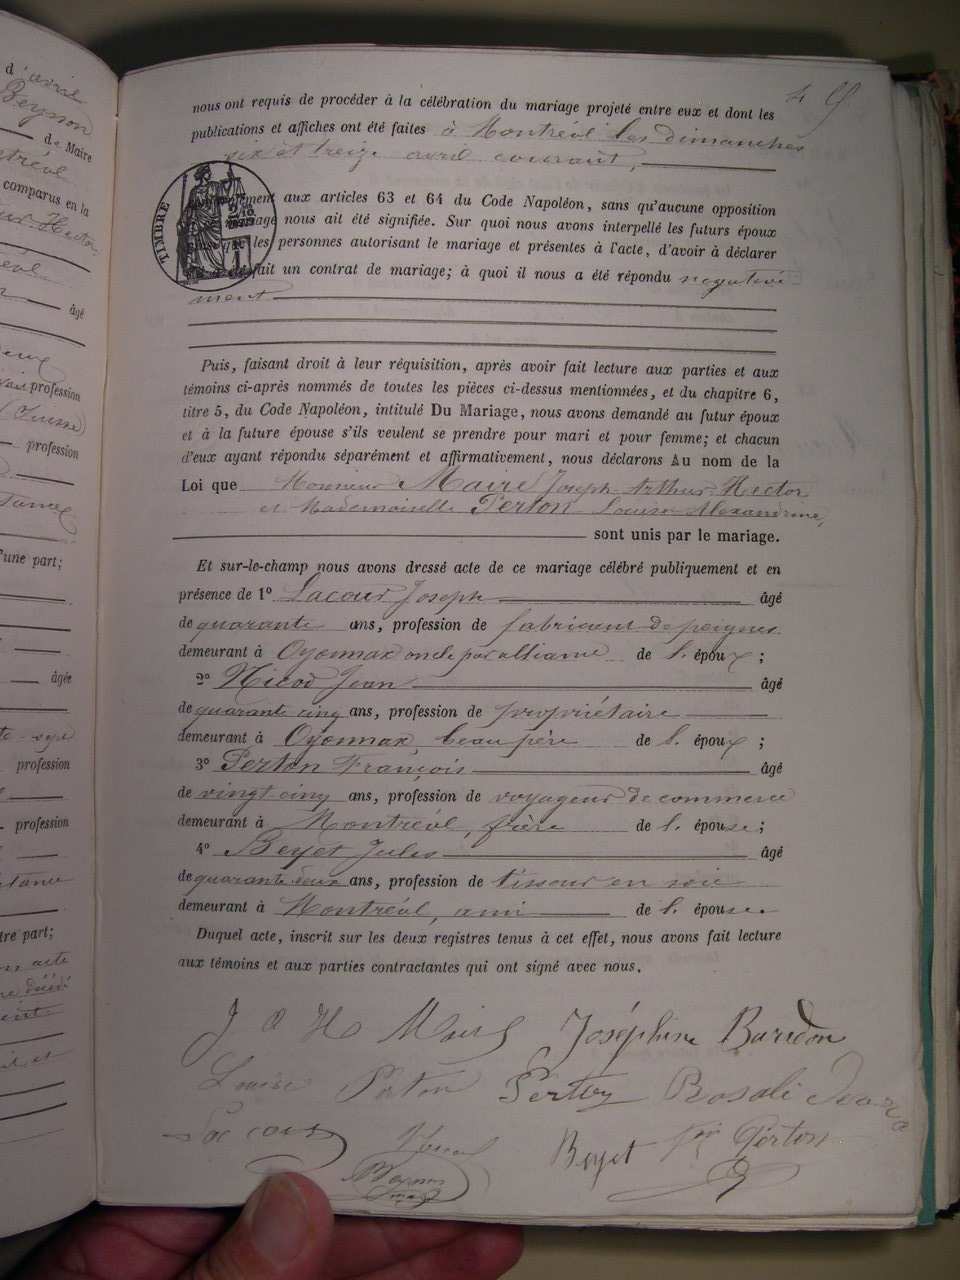 d avril
Beysson
de Maire
comparus en la
âgé
profession
(Suisse)
profession
'une part;
âgée
profession
profession
tre part;
acte
nous ont requis de procéder à la célébration du mariage projeté entre eux et dont les
publications et affiches ont été faites à Montréal les dimanches
six et treize avril courant,
TIMBRE
aux articles 63 et 64 du Code Napoléon, sans qu'aucune opposition
nous ait été signifiée. Sur quoi nous avons interpellé les futurs époux
les personnes autorisant le mariage et présentes à l'acte, d'avoir à déclarer
fait un contrat de mariage; à quoi il nous a été répondu négative
ment
Puis, faisant droit à leur réquisition, après avoir fait lecture aux parties et aux
témoins ci-après nommés de toutes les pièces ci-dessus mentionnées, et du chapitre 6,
titre 5, du Code Napoléon, intitulé Du Mariage, nous avons demandé au futur époux
et à la future épouse s'ils veulent se prendre pour mari et pour femme; et chacun
d'eux ayant répondu séparément et affirmativement, nous déclarons Au nom de la
Loi que Monsieur Maire Joseph Arthur Hector
et Mademoiselle Perton Louise Alexandrine,
sont unis par le mariage.
Et sur-le-champ nous avons dressé acte de ce mariage célébré publiquement et en
présence de 1° Lacour Joseph âgé
de quarante ans, profession de fabricant de peignes
demeurant à Oyonnax oncle par alliance de l. époux;
2° Nicod Jean âgé
de quarante cinq ans, profession de propriétaire
demeurant à Oyonnax, beau père de l. époux;
3° Perton François âgé
de vingt-cinq ans, profession de voyageur de commerce
demeurant à Montréal, frère de l. épouse;
4° Beyet Jules âgé
de quarante deux ans, profession de tisseur en soie
demeurant à Montréal, ami de l. épouse.
Duquel acte, inscrit sur les deux registres tenus à cet effet, nous avons fait lecture
aux témoins et aux parties contractantes qui ont signé avec nous.
J A H Maire Joséphine Baridon
Louise Perton Perton Rosali
Lacour Beyet Perton
Beysson